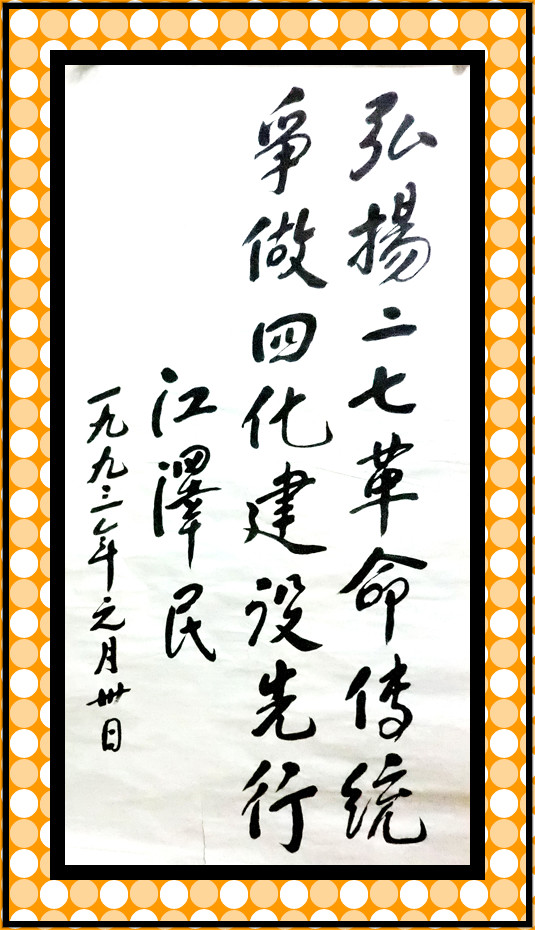 弘揚二七革命传統
爭做四化建设先行
江澤民
一九九三年元月卅日